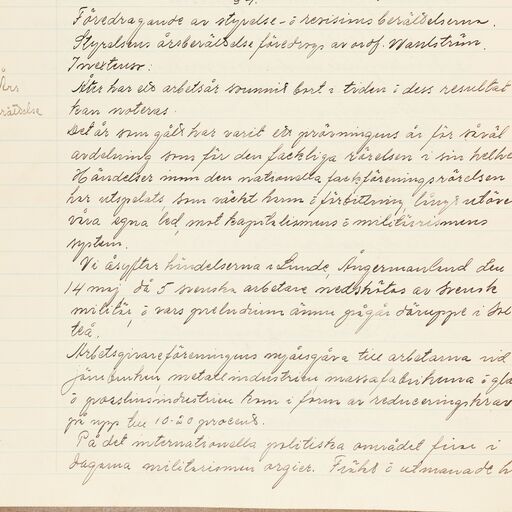 Föredragande av styrelse- o revisionsberättelserna.
Styrelsens årsberättelse föredrogs av ordf. Wahlström.
In extenso:
Års
Åter har ett arbetsår svunnit bort i tiden o dess resultat
berättelse
kan noteras.
Det år som gått har varit ett prövningens år för såväl
avdelning som för den fackliga rörelsen i sin helhe
Händelser inom den nationella fackföreningsrörelsen
har utspelats, som väckt harm o förbittring långt utöve
våra egna led, mot kapitalismens o militärismens
system.
Vi åsyftar händelserna i Lunde, Ångermanland den
14 maj, då 5 svenska arbetare nedsköts av svensk
militär, o vars preludium ännu pågår däruppe i
Arbetsgivareföreningens nyårsgåva till arbetarna vid
järnbruken metallindustrien massafabrikerna o gla
o porslinsindustrien kom i form av reduceringskrav
på upp till 10-20 procent.
På det internationella politiska området firar i
dagarna militarismen orgier. Fräckt o utmanande h